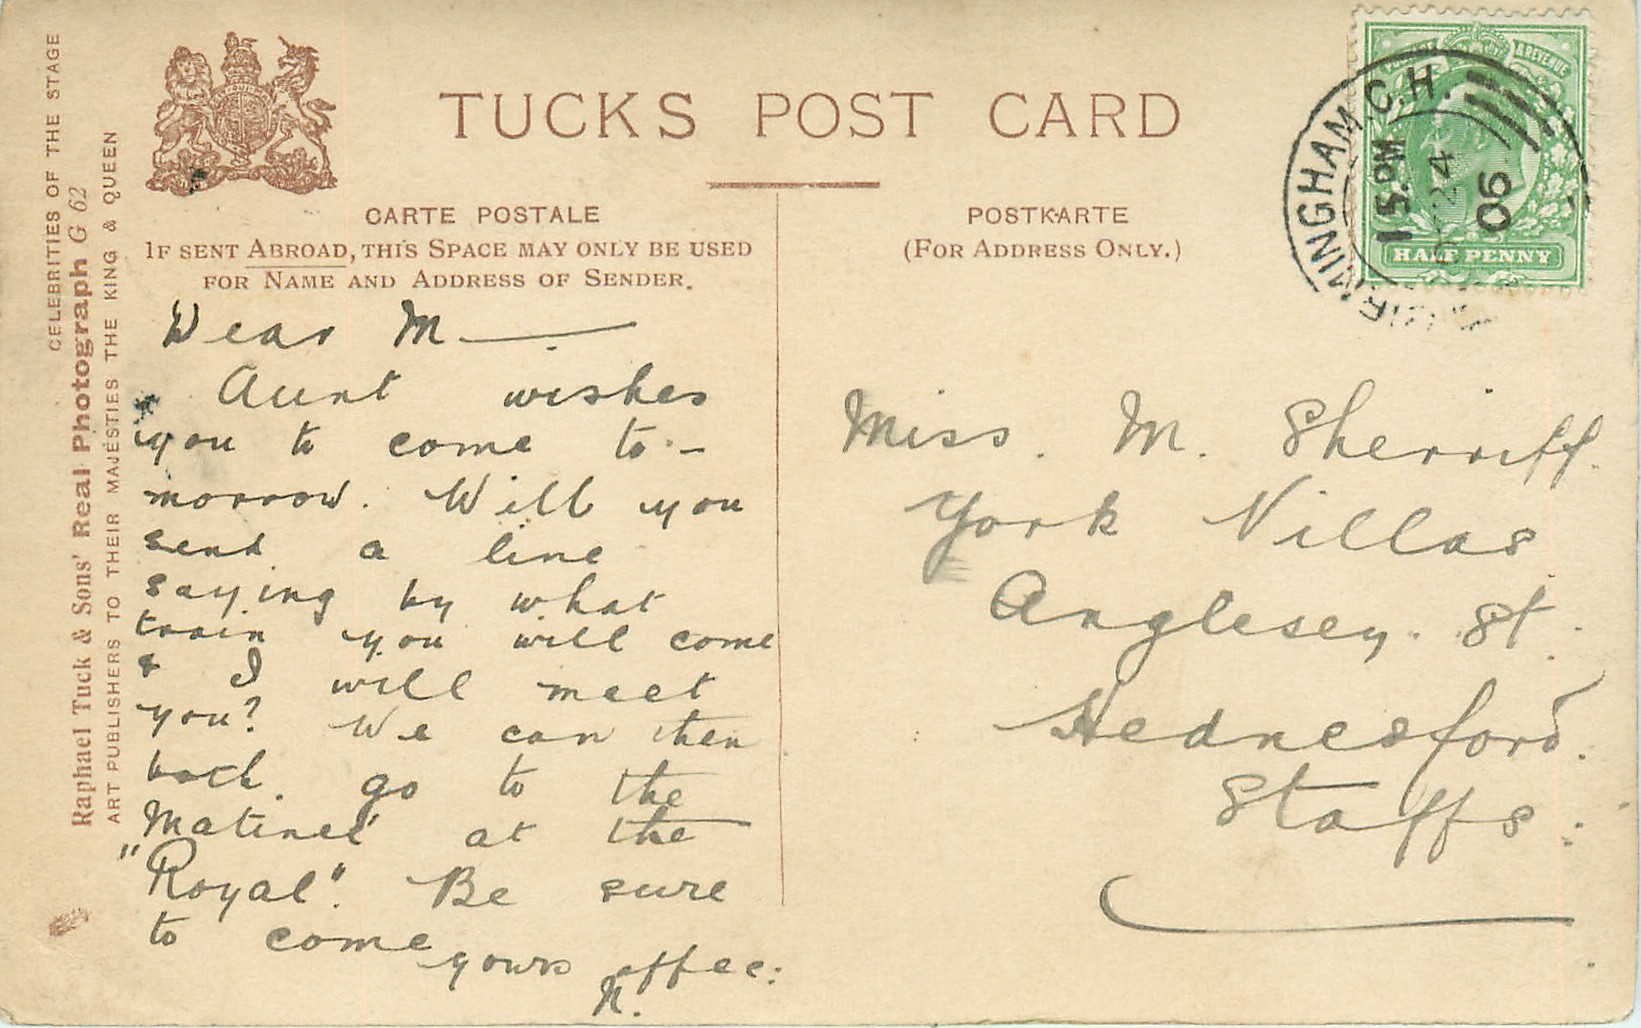 CELEBRITIES OF THE STAGE
Raphael Tuck & Sons' Real Photograph G 62
ART PUBLISHERS TO THEIR MAJESTIES THE KING & QUEEN
TUCKS POST CARD
CARTE POSTALE
IF SENT ABROAD, THIS SPACE MAY ONLY BE USED
FOR NAME AND ADDRESS OF SENDER.
POSTKARTE
(FOR ADDRESS ONLY.)
BIRMINGHAM C.H.
15.PM
24
06
& REVENUE
HALF PENNY
Dear M——.
Aunt wishes
you to come to-
morrow. Will you
send a line
saying by what
train you will come
& I will meet
you? We can then
both go to the
Matineé at the
"Royal". Be sure
to come
yours affec:
M.
Miss. M. Sherriff.
York Villas
Anglesey. St.
Hednesford.
Staffs: